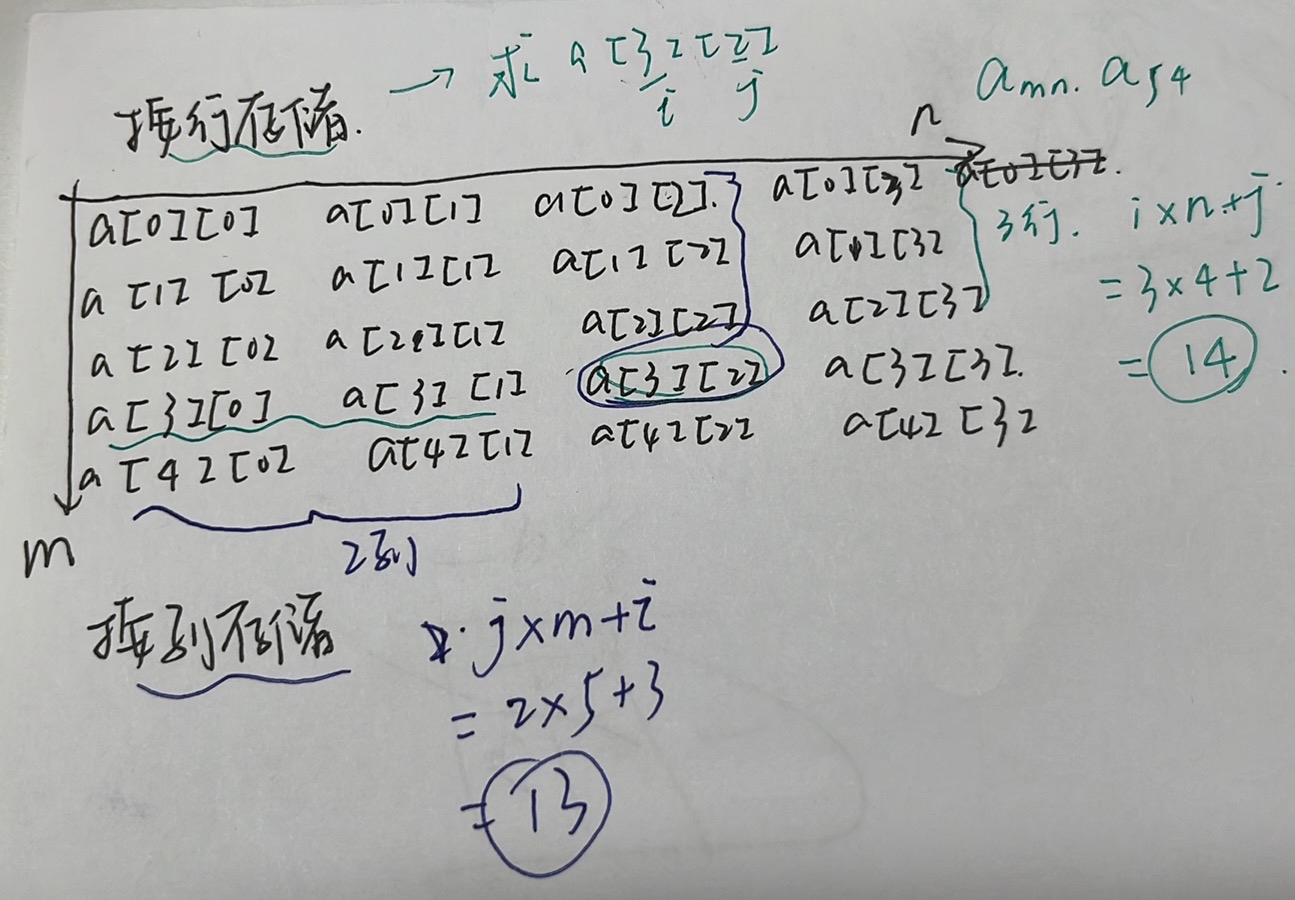 按行存储. → 求 a[3][2]
i j
a mn. a 54
n
a[0][0] a[0][1] a[0][2]. a[0][3] a[0][3].
a[1][0] a[1][1] a[1][2] a[1][3]
a[2][0] a[2][1] a[2][2] a[2][3]
a[3][0] a[3][1] a[3][2] a[3][3].
a[4][0] a[4][1] a[4][2] a[4][3]
3行. i×n+j
=3×4+2
=14.
m
2列
按列存储 j×m+i
=2×5+3
=13